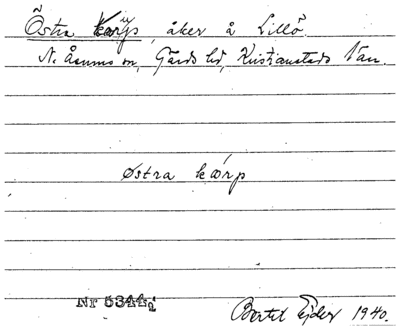 Östra kärp, åker å Lillö.
N. Åsums sn, Gärds hd, Kristianstads län.
østra kærp
Nr 5344
Bertil Ejder 1940.